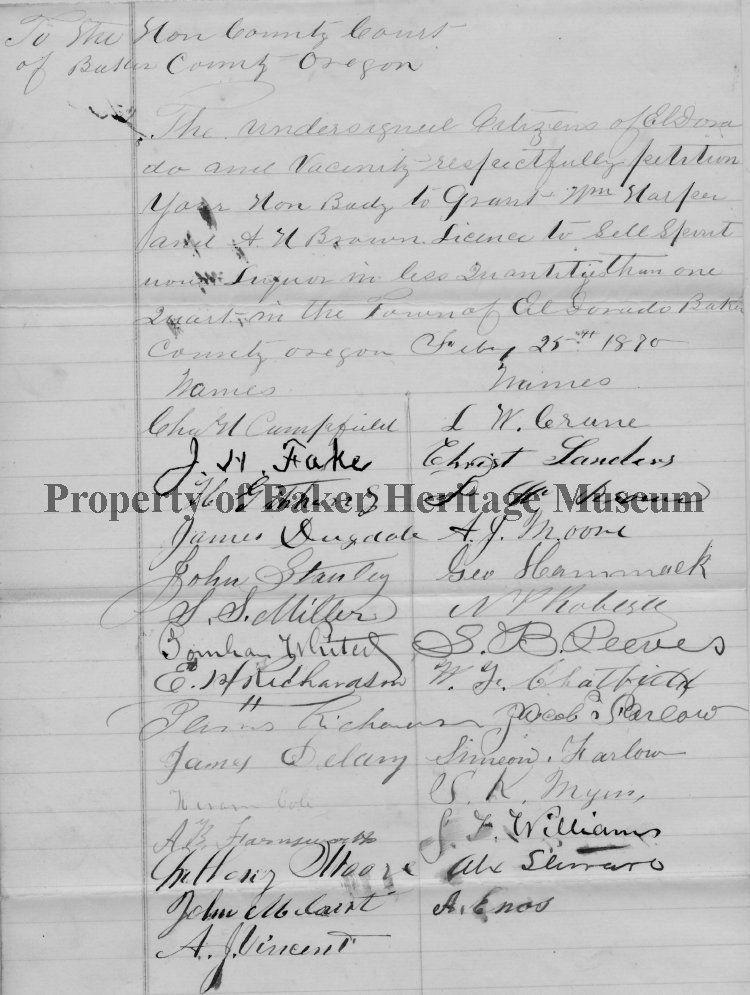 To the Hon County Court
of Baker County Oregon
The undersigned Citizens of El Dora
do and Vacinity respectfully petition
Your Hon Body to Grant Wm Harper
and A H Brown Licence to Sell Spirit
uous Liquor in less Quantity than one
Quart in the Town of El Dorado Baker
County oregon Feby 25th 1870
Names Names
Chas H Campfield L W. Crane
J. H. Fake Christ Landers
Property of Baker Heritage Museum
James Dugdale A. J. Moore
John Stanley Geo Hammack
S. S. Miller N P Roberts
Whited S. B. Reeves
E. H Richardson W. F. Chatfield
Jacob Parlow
James Delany Simeon Farlow
Hiram Cole S. K. Myers
A. B. Farnsworth S. F. Williams
Moore Alx
John A. Enos
A. J. Vincent